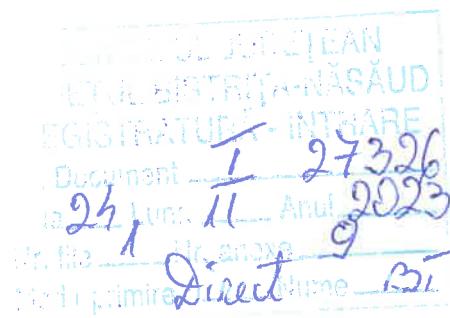 JUDEȚEAN
BISTRIȚA-NĂSĂUD
REGISTRATURĂ - INTRARE
Document I 27326
24, Luna 11 Anul 2023
Nr. file 1 Nr. anexe 9
primire Direct